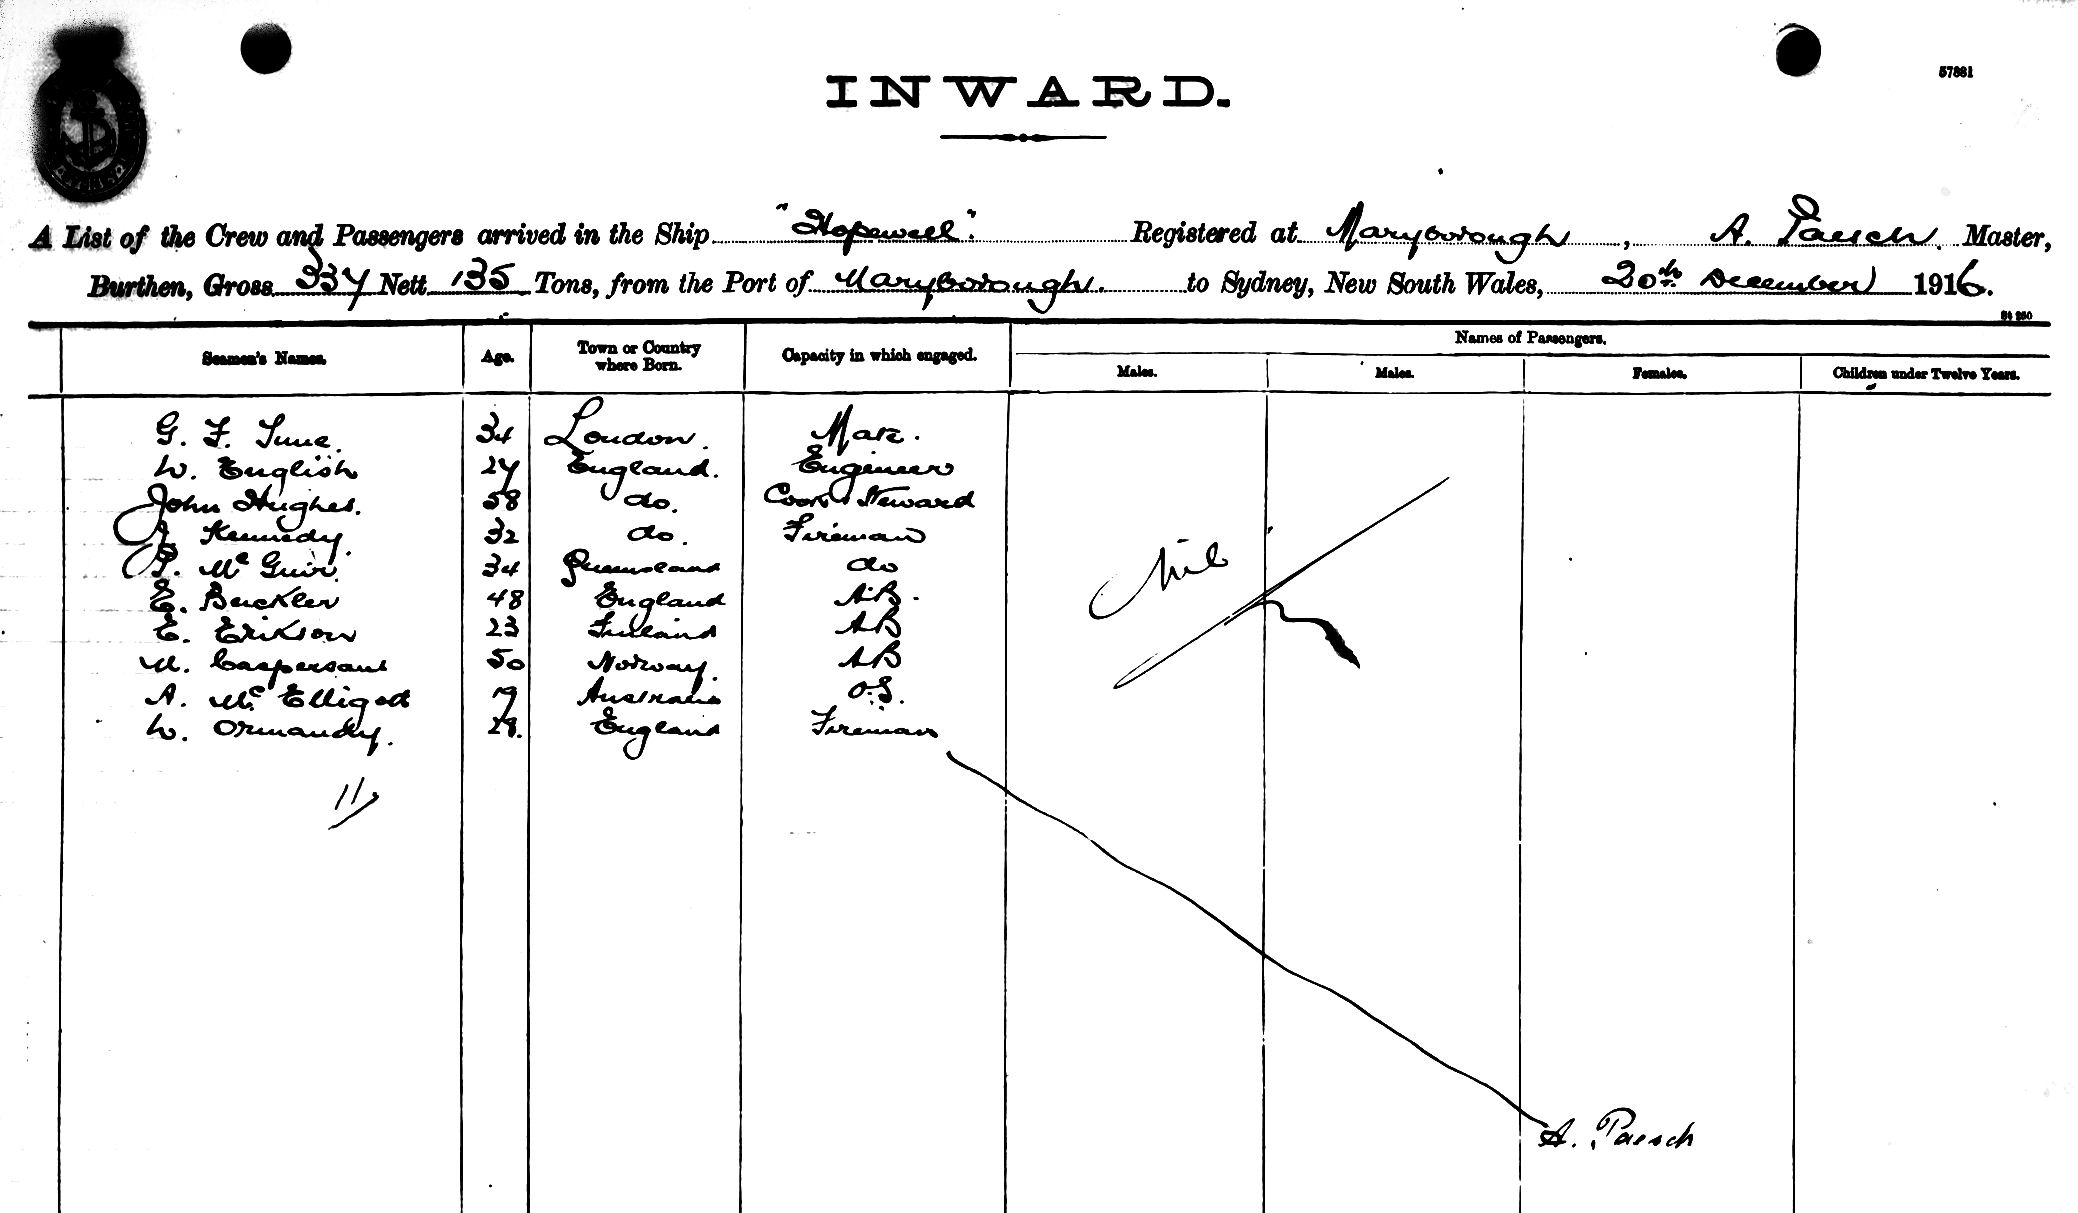 57881
INWARD.
A List of the Crew and Passengers arrived in the Ship "Hopewell". Registered at Maryborough, A. Paesch. Master,
Burthen, Gross 337 Nett 135 Tons, from the Port of Maryborough. to Sydney, New South Wales, 20th December 1916.
Seamen's Names. Age. Town or Country where Born. Capacity in which engaged. Names of Passengers.
Males. Males. Females. Children under Twelve Years.
G. F. 34 London. Mate.
W. English 27 England. Engineer
John Hughes. 58 do. Cook & Steward
J. Kennedy. 32 do. Fireman
P. McGuir. 34 Queensland do
E. Buckler 48 England A.B.
E. Erikson 23 Finland AB
50 Norway. AB
A. McElligott 19 Australia O.S.
W. Ormandy. 28. England Fireman
Nil
11
A. Paesch